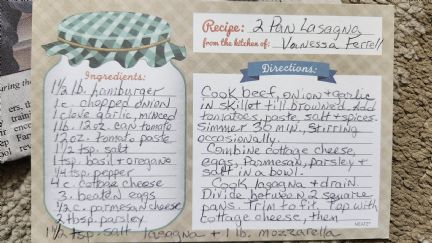 Recipe: 2 Pan Lasagna
from the kitchen of: Vanessa Ferrell
Ingredients:
1 1/2 lb. hamburger
1 c. chopped onion
1 clove garlic, minced
1 lb. 12 oz. can tomato
12 oz. tomato paste
1 1/2 tsp. salt
1 tsp. basil & oregano
1/4 tsp. pepper
4 c. cottage cheese
3 beaten eggs
1/2 c. parmesan cheese
2 tbsp. parsley
1 1/2 tsp. salt lasagna & 1 lb. mozzarella
Directions:
Cook beef, onion & garlic
in skillet till browned. Add
tomatoes, paste, salt & spices.
Simmer 30 min, stirring
occasionally.
Combine cottage cheese,
eggs, Parmesan, parsley &
salt in a bowl.
Cook lasagna & drain.
Divide between 2 square
pans. Trim to fit. Top with
cottage cheese, then
during the